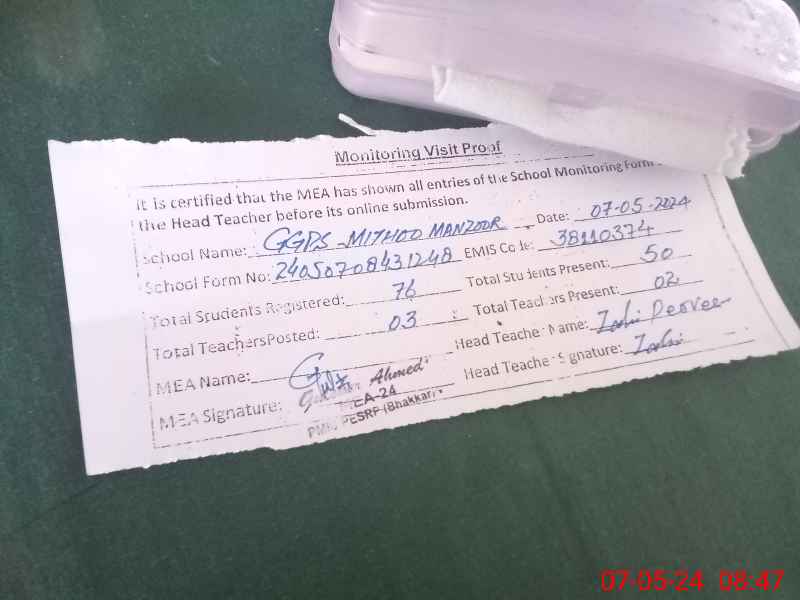 Monitoring Visit Proof
It is certified that the MEA has shown all entries of the School Monitoring Form
the Head Teacher before its online submission.
School Name: GGPS - MITHOO MANZOOR Date: 07-05-2024
School Form No: 24050708431248 EMIS Code: 38110374
Total Students Registered: 76 Total Students Present: 50
Total Teachers Posted: 03 Total Teachers Present: 02
MEA Name: Head Teacher Name:
MEA Signature: Ahmed Head Teacher Signature:
MEA-24
PESRP (Bhakkar)
07-05-24 08:47